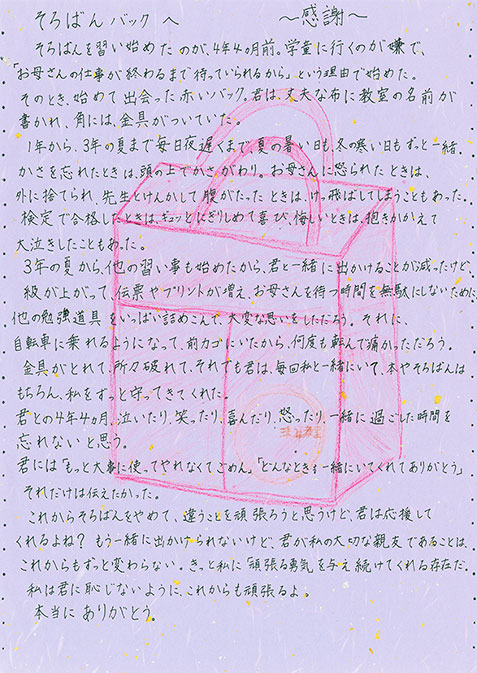 そろばん バック へ　　　～感謝～
そろばんを習い始めたのが、4年4ヵ月前。学童に行くのが嫌で、
「お母さんの仕事が終わるまで待っていられるから」という理由で始めた。
そのとき、始めて出会った赤いバック。君は、丈夫な布に教室の名前が
書かれ、角には、金具がついていた。
1年から、3年の夏まで毎日夜遅くまで、夏の暑い日も、冬の寒い日もずっと一緒。
かさを忘れたときは、頭の上でかさがわり。お母さんに怒られたときは、
外に捨てられ、先生とけんかして腹がたったときは、けっ飛ばしてしまうこともあった。
検定で合格したときは、ギュッとにぎりしめて喜び、悔しいときは、抱きかかえて
大泣きしたこともあった。
3年の夏から、他の習い事も始めたから、君と一緒に出かけることが減ったけど、
級が上がって、伝票やプリントが増え、お母さんを待つ時間を無駄にしないために、
他の勉強道具をいっぱい詰めこんで、大変な思いをしただろう。それに、
自転車に乗れるようになって、前カゴにいたから、何度も転んで痛かっただろう。
金具がとれて、所々破れて、それでも君は、毎回私と一緒にいて、本やそろばんは
もちろん、私をずっと守ってきてくれた。
君との4年4ヵ月、泣いたり、笑ったり、喜んだり、怒ったり、一緒に過ごした時間を
忘れないと思う。
君には「もっと大事に使ってやれなくてごめん。」「どんなときも一緒にいてくれてありがとう」
それだけは伝えたかった。
これからそろばんをやめて、違うことを頑張ろうと思うけど、君は応援して
くれるよね？もう一緒に出かけられないけど、君が私の大切な親友であることは、
これからもずっと変わらない。きっと私に「頑張る勇気を与え続けてくれる存在だ。
私は君に恥じないように、これからも頑張るよ。
本当にありがとう。